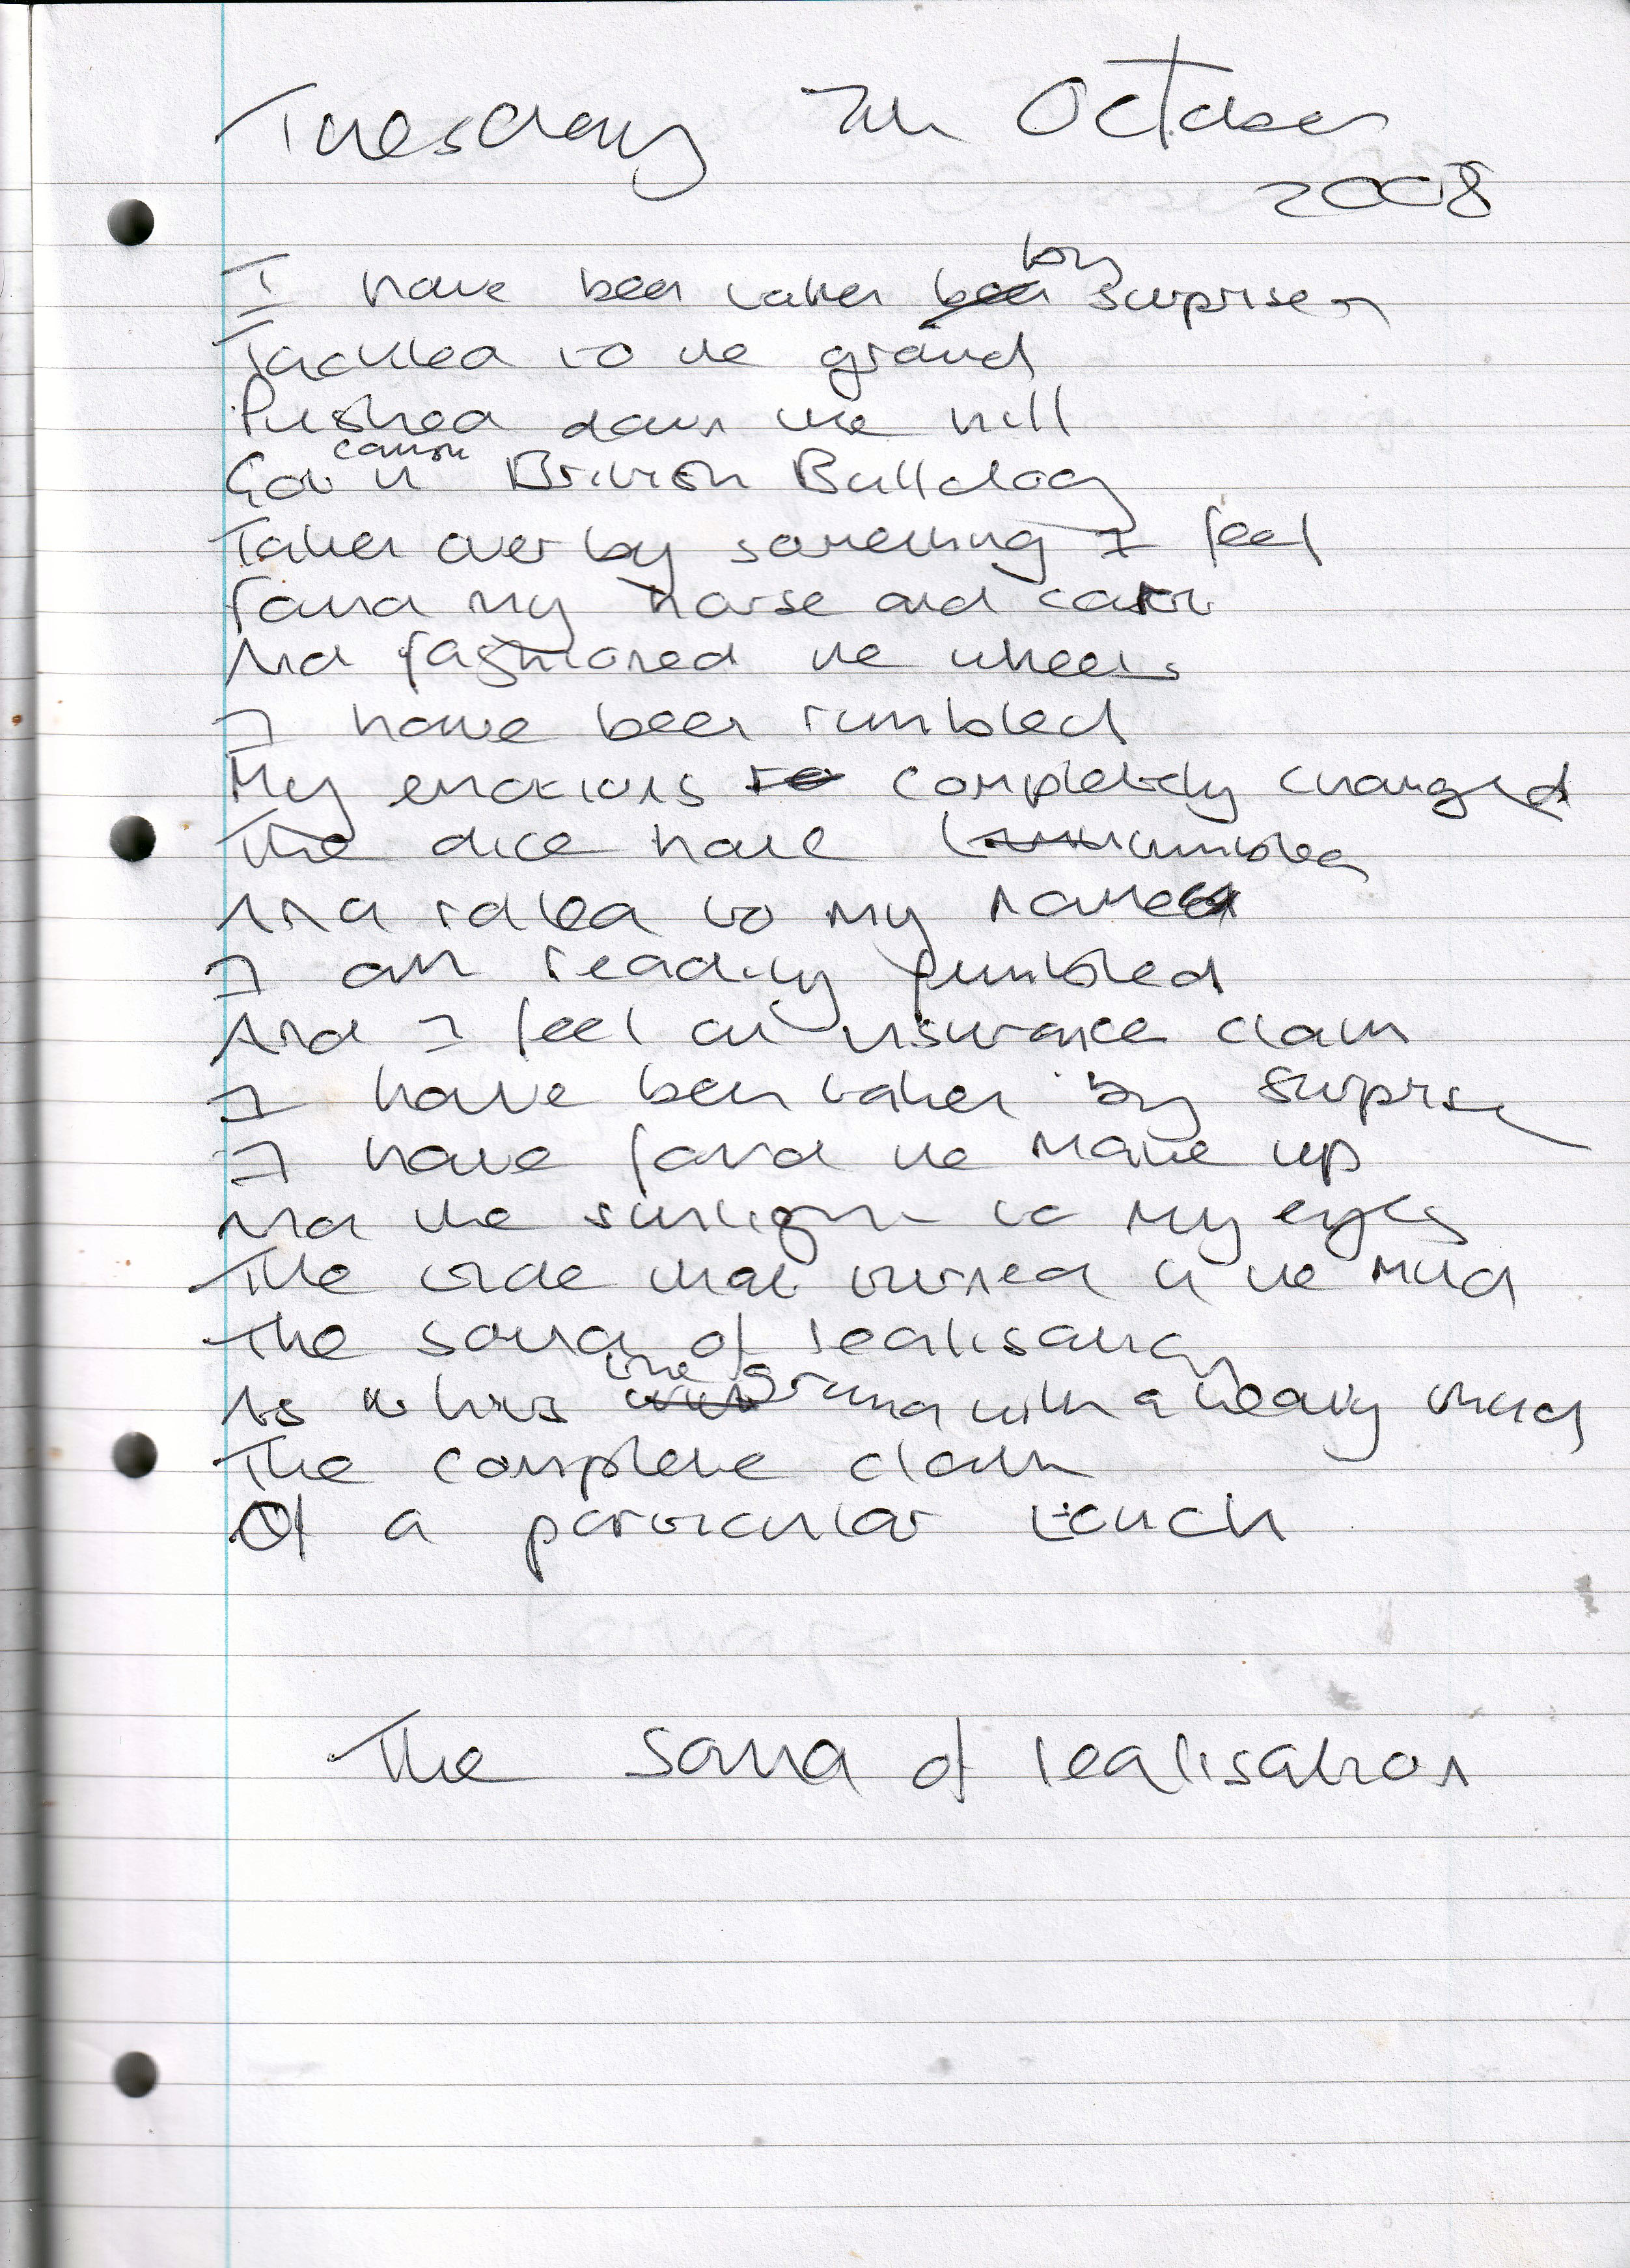 Tuesday 7th October
2008
I have been taken by surprise
Tackled to the ground
Pushed down the hill
Got caught in British Bulldog
Taken over by something I feel
Found my horse and cart
And fashioned the wheels
I have been rumbled
My emotions completely changed
The dice have tumbled
And rolled to my name
I am readily fumbled
And I feel an insurance claim
I have been taken by surprise
I have found the make up
And the sunlight to my eyes
The tide that turned in the mud
The sound of realisation
As it hits the ground with a heavy thud
The complete claim
Of a particular touch
The sound of realisation